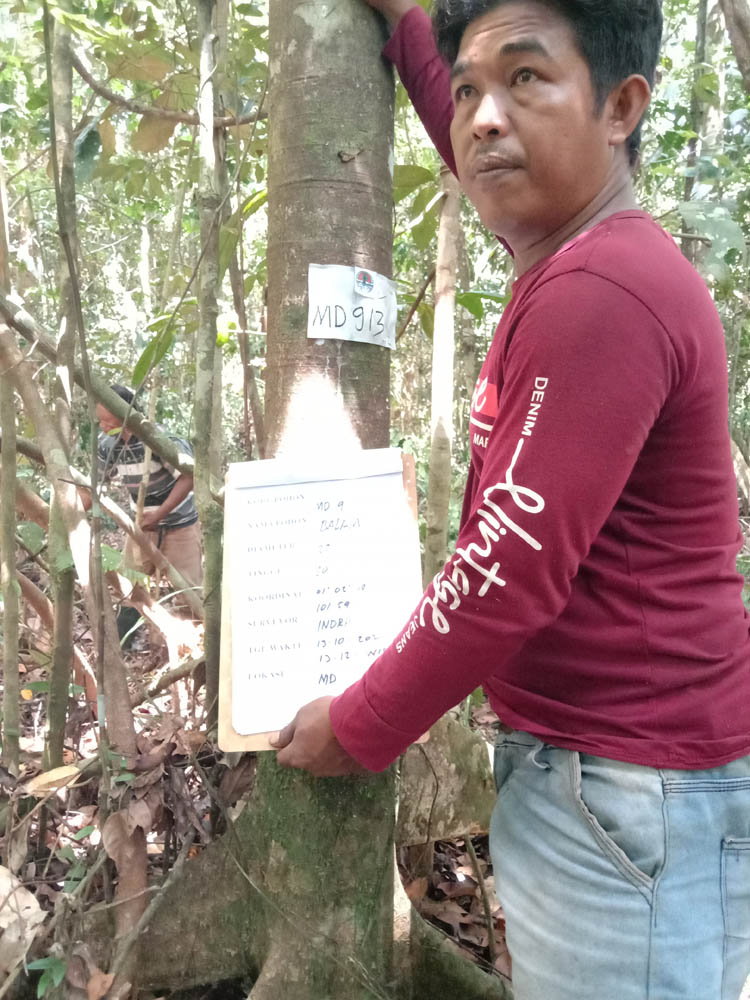 MD 913
KODE POHON MD 9
NAMA POHON
DIAMETER
TINGGI
KOORDINAT 01° 02'
101 59
SURVEYOR INDRA
TGL WAKTU 13 10 202
13.12
LOKASI MD
DENIM
Vintage
JEANS
MAR